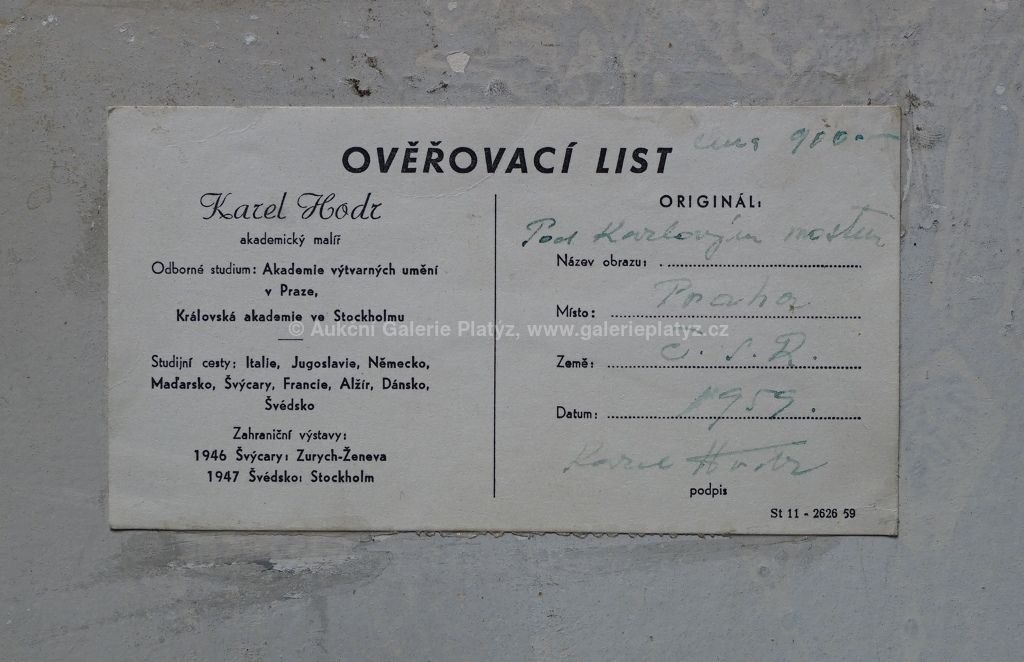 OVĚŘOVACÍ LIST
cena 900.—
Karel Hodr
akademický malíř
Odborné studium: Akademie výtvarných umění
v Praze,
Královská akademie ve Stockholmu
Studijní cesty: Italie, Jugoslavie, Německo,
Maďarsko, Švýcary, Francie, Alžír, Dánsko,
Švédsko
Zahraniční výstavy:
1946 Švýcary: Zurych-Ženeva
1947 Švédsko: Stockholm
ORIGINÁL:
Pod Karlovým mostem
Název obrazu:
Praha
Místo:
Č. S. R.
Země:
1959.
Datum:
Karel Hodr
podpis
St 11 - 2626 59
© Aukční Galerie Platýz, www.galerieplatyz.cz